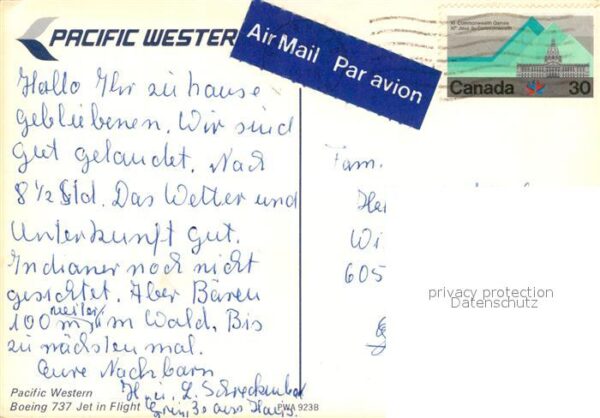 PACIFIC WESTER
Air Mail Par avion
XI Commonwealth Games
XIes Jeux du Commonwealth
Canada 30
Hallo Ihr zu hause
gebliebenen. Wir sind
gut gelandet. Nach
8 1/2 Std. Das Wetter und
Unterkunft gut.
Indianer noch nicht
gesichtet. Aber Bären
100 m weiter im Wald. Bis
zu nächsten mal.
Eure Nachbarn
Fam.
Wi
605
privacy protection
Datenschutz
Pacific Western
Boeing 737 Jet in Flight
PWA 9238